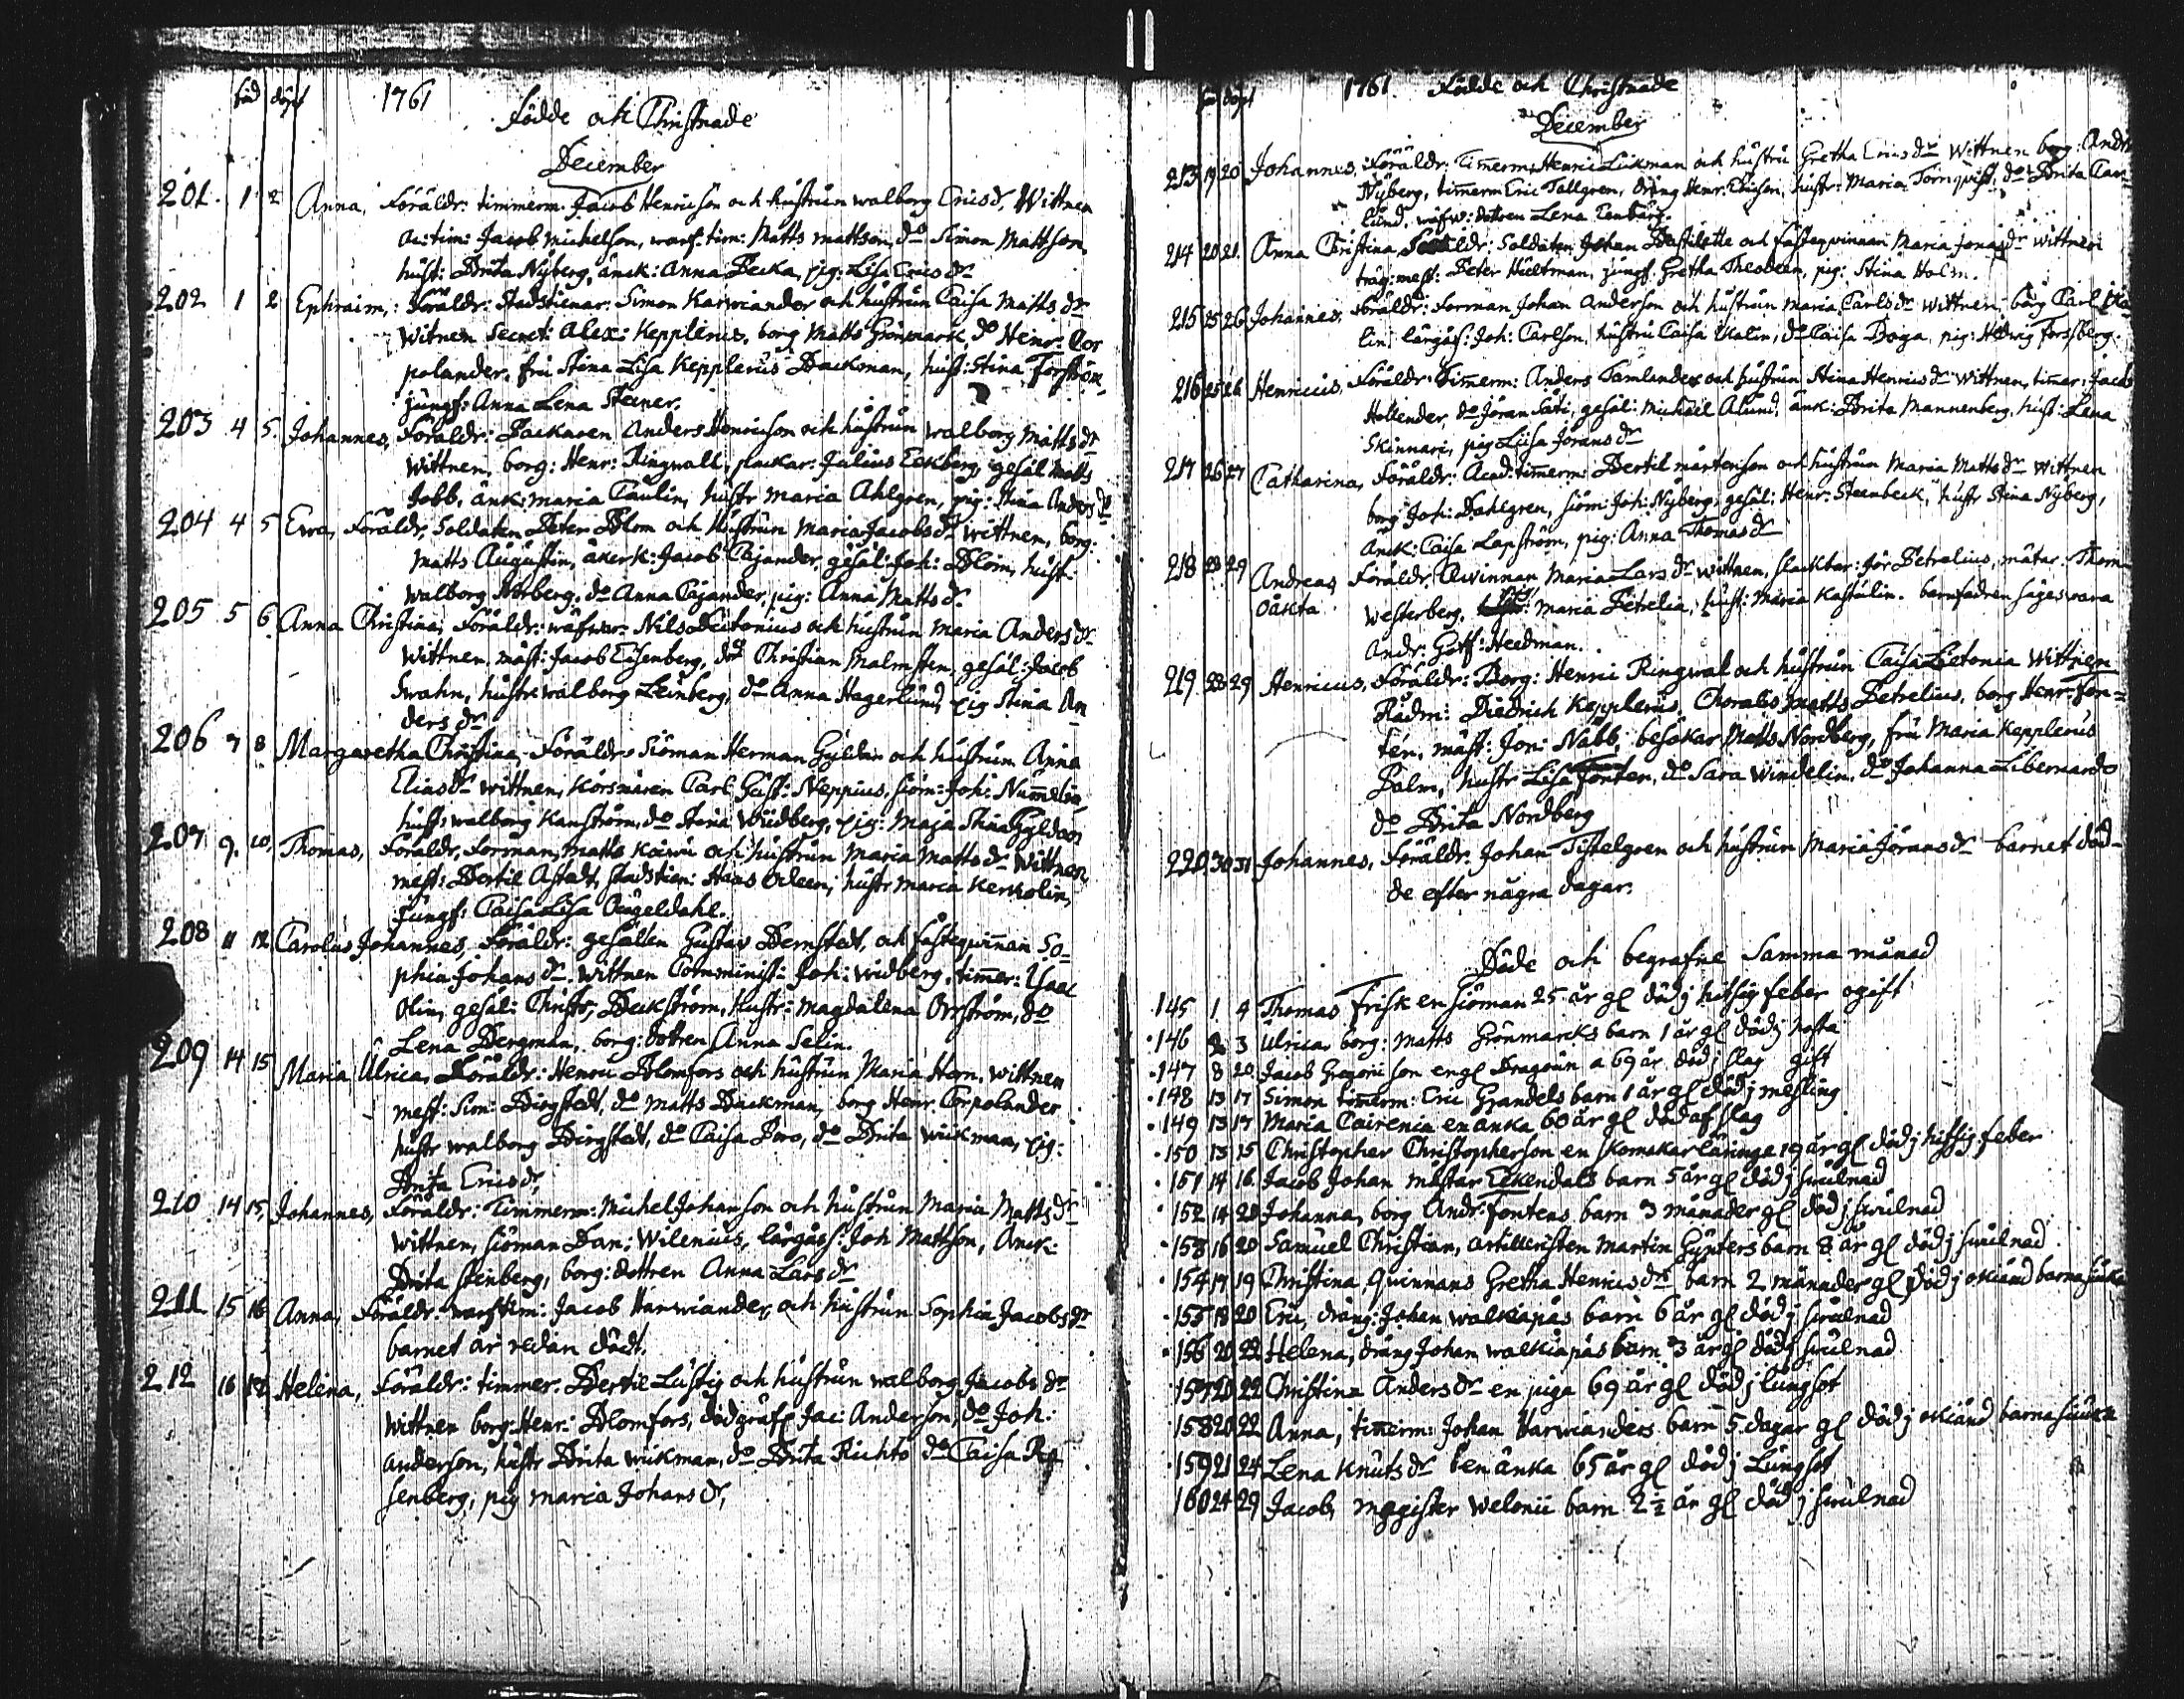 föd döpt 1761
Födde och Christnade
December
201. 1 2 Anna, Föräldr: timmerm. Jacob Henricson och hustrun walborg Ericsdr. Wittnen
Ac: tim: Jacob Michelson, warf: tim: Matts Mattson, do Simon Mattson,
hust: Brita Nyberg, änck: Anna Becka, pig: Lisa Ericsdr
202 1 2 Ephraim,: Föräldr: Stadstienar: Simon Karwiander och hustrun Caisa Mattsdr
Witnen Secret: Alex: Kepplerus, borg Matts Grönmark, do Henr: Cor
polander, fru Stina Lisa Kepplerus Backman, hust: Stina Forström
jungf: Anna Lena Steiner.
203 4 5. Johannes, Föräldr: Backaren Anders Henricson och hustrun walborg Mattsdr
Wittnen, borg: Henr: Ringwall, plackar: Julius Eckberg, gesäl Matts
Jobb, änk: maria Paulin, hustr Maria Ahlgren, pig: Stina Andersdr
204 4 5 Ewa, Föräldr, Soldaten Peter Blom och hustrun Maria Jacobsdr wittnen, borg:
Matts Augustin, åkerk: Jacob Cajander, gesäl: Joh: Blom, hust.
Walborg Norberg, do Anna Cajander, pig: Anna Mattsdr.
205 5 6 Anna Christina, Föräldr: wäfwar. Nils Deutonius och hustrun Maria Andersdr
Wittnen. mäst: Jacob Eisenberg, do Christian Malmsten, gesäl: Jacob
Swahn, hustr walborg Leinberg, do Anna Hagerlund, pig Stina An
dersdr
206 7 8 Margaretha Christina, Föräldr Siöman Herman Gyldén och hustrun Anna
Eliasdr wittnen, Körsnären Carl Gust: Neppius, siöm: Joh: Nummelin,
hust: walborg Kanström, do Stina Widberg, pig: Maja Stina Gyldén
207 9. 10, Thomas, Föräldr, Forman, Matts Koiwu och hustrun Maria Mattsdr Wittnen
mest: Bertil Astedt, Stadstien: Hans Orleen, hustr maria Kerkolin,
jungf: Caisa Lisa Engeldahl.
208 11 12 Carolus Johannes, Föräldr: gesällen Gustav Bernstedt, och fästeqwinnan So-
phia Johansdr Wittnen Comminist: Joh: Widberg, timmer: Isaac
Olin, gesäl: Christo, Beckström, Hustr: Magdalena Orrström, do
Lena Bergman, borg: dottren Anna Selin.
209 14 15 Maria Ulrica, Föräldr: Henric Blomfors och hustrun Maria Horn. Wittnen
mest: Sim: Birgstedt, do Matts Backman, borg Henr. Corpolander
hustr walborg Birgstedt, do Caisa Boro, do Brita wickman, pig:
Brita Ericsdr,
210 14 15, Johannes, Föräldr: Timmerm: Michel Johanson och hustrun Maria Mattsdr
Wittnen, siöman Dan: Wilenius, lärgåss: Joh Mattson, Anck:
Brita Stenberg, borg: dottren Anna Larsdr
211 15 16 Anna, Föräldr. warfstim: Jacob Harwiander, och hustrun Sophia Jacobsdr
barnet är redan dödt.
212 16 17 Helena, Föräldr: timmer. Bertil Lustig och hustrun walborg Jacobsdr
Wittnen borg: Henr: Blomfors, dödgräf, Jac: Anderson, do Joh:
anderson, hustr Brita wickman, do Brita Richto do Caisa Ro
senberg, pig maria Johansdr,
föd döpt 1761. Födde och Christnade
December
213 19 20 Johannes, Föräldr. Timerm. Henric Lickman och hustru Gretha Ericsdr Wittnen borg: Andr
Nyberg, timerm Eric Tallgren, dräng Henr: Ericson, hustr: Maria Törnqvist, do Brita Car
lund, wäfw: dottren Lena Tenberg.
214 20 21. Anna Christina Föräldr: Soldaten Johan Bastilette och fästeqwinnan Maria Jonasdr wittnen
träg: mest: Peter Hultman, jungf. Gretha Theodeen, pig: Stina Holm.
215 25 26 Johannes, Föräldr: Forman Johan Anderson och hustrun Maria Carlsdr Wittnen: borg Carl
lin, lärgåss: Joh: Carlson, hustru Caisa Ekalin, do Caisa Boga, pig: Hedwig Forssberg.
216 25 26 Henricus, Föräldr: Timerm: Anders Tamlander och hustrun Stina Henricsdr Wittnen, timer: Jacob
Hollender, do Jöran Sati, gesäl: Michael Alund, änk: Brita Mannenberg, hust: Lena
Skinnari, pig Lisa Jöransdr
217 26 27 Catharina, Föräldr: Acad: timerm: Bertil Mårtenson och hustrun Maria Mattsdr wittnen
borg Joh: Dahlgren, siöm: Joh: Nyberg, gesäl: Henr: Steenbeck, hustr Stina Nyberg,
Änck: Caisa Lagström, pig: Anna Thomasdr
218 28 29 Andreas Föräldr. Qwinnan Maria Larsdr wittnen, slacktar: Jör Petralius, mätar. Thom
oäkta Westerberg, maria Petrelia, hust: Maria Kastulin. barnfadren säges wara
Andr: Gottf: Heedman.
219 28 29 Henricus, Föräldr: Borg: Henric Ringwal och hustrun Caisa Letonia Wittnen
Rådm: Diedrich Kepplerus, Choralis Matts Petrelius, borg Henr: Fon-
ten, mäst: Jon: Nabb, besökar Matts Nordberg, fru Maria Kepplerus
Palm, hustr Lisa Fonten, do Sara Windelin, do Johanna Libernardo
do Brita Nordberg
220 30 31 Johannes, Föräldr: Johan Tistelgren och hustrun Maria Jöransdr barnet död-
de efter några dagar.
Döde och begrafne Samma månad
145 1 4 Thomas Frisk en siöman 25 år gl död j hitsig feber ogift
146 2 3 Ulrica, borg: Matts Grönmarcks barn 1 år gl död j hosta
147 8 20 Jacob Gregorison en gl Dragoun a 69 år död j slag gift
148 13 17 Simon timerm: Eric Grandels barn 1 år gl död j mesling
149 13 17 Maria Cairenia en änka 60 år gl död af slag
150 13 15 Christopher Christopherson en skomakar läringe 19 år gl död j hitsig feber
151 14 16. Jacob Johan mästar Eckendals barn 5 år gl död j swulnad
152 14 20 Johanna, borg Andr: Fontens barn 3 månader gl död j swulnad
153 16 20 Samuel Christian, artilleristen Martin Gynters barn 8 år gl död j swulnad
154 17 19 Christina, Qwinnans Gretha Henricsdr barn 2 månader gl död j okiänd barnasiuka
155 18 20 Eric, dräng: Johan walkiapäs barn 6 år gl död j swulnad
156 20 22 Helena, dräng Johan walkiapäs barn 3 år gl död j swulnad
157 20 22 Christina Andersdr en piga 69 år gl död j lungsot
158 20 22 Anna, timerm: Johan Harwianders barn 5 dagar gl död j okiänd barnasiuka
159 21 24 Lena Knutsdr en änka 65 år gl död j Lungsot
160 24 29 Jacob, magister Welonii barn 2 1/2 år gl död j swulnad